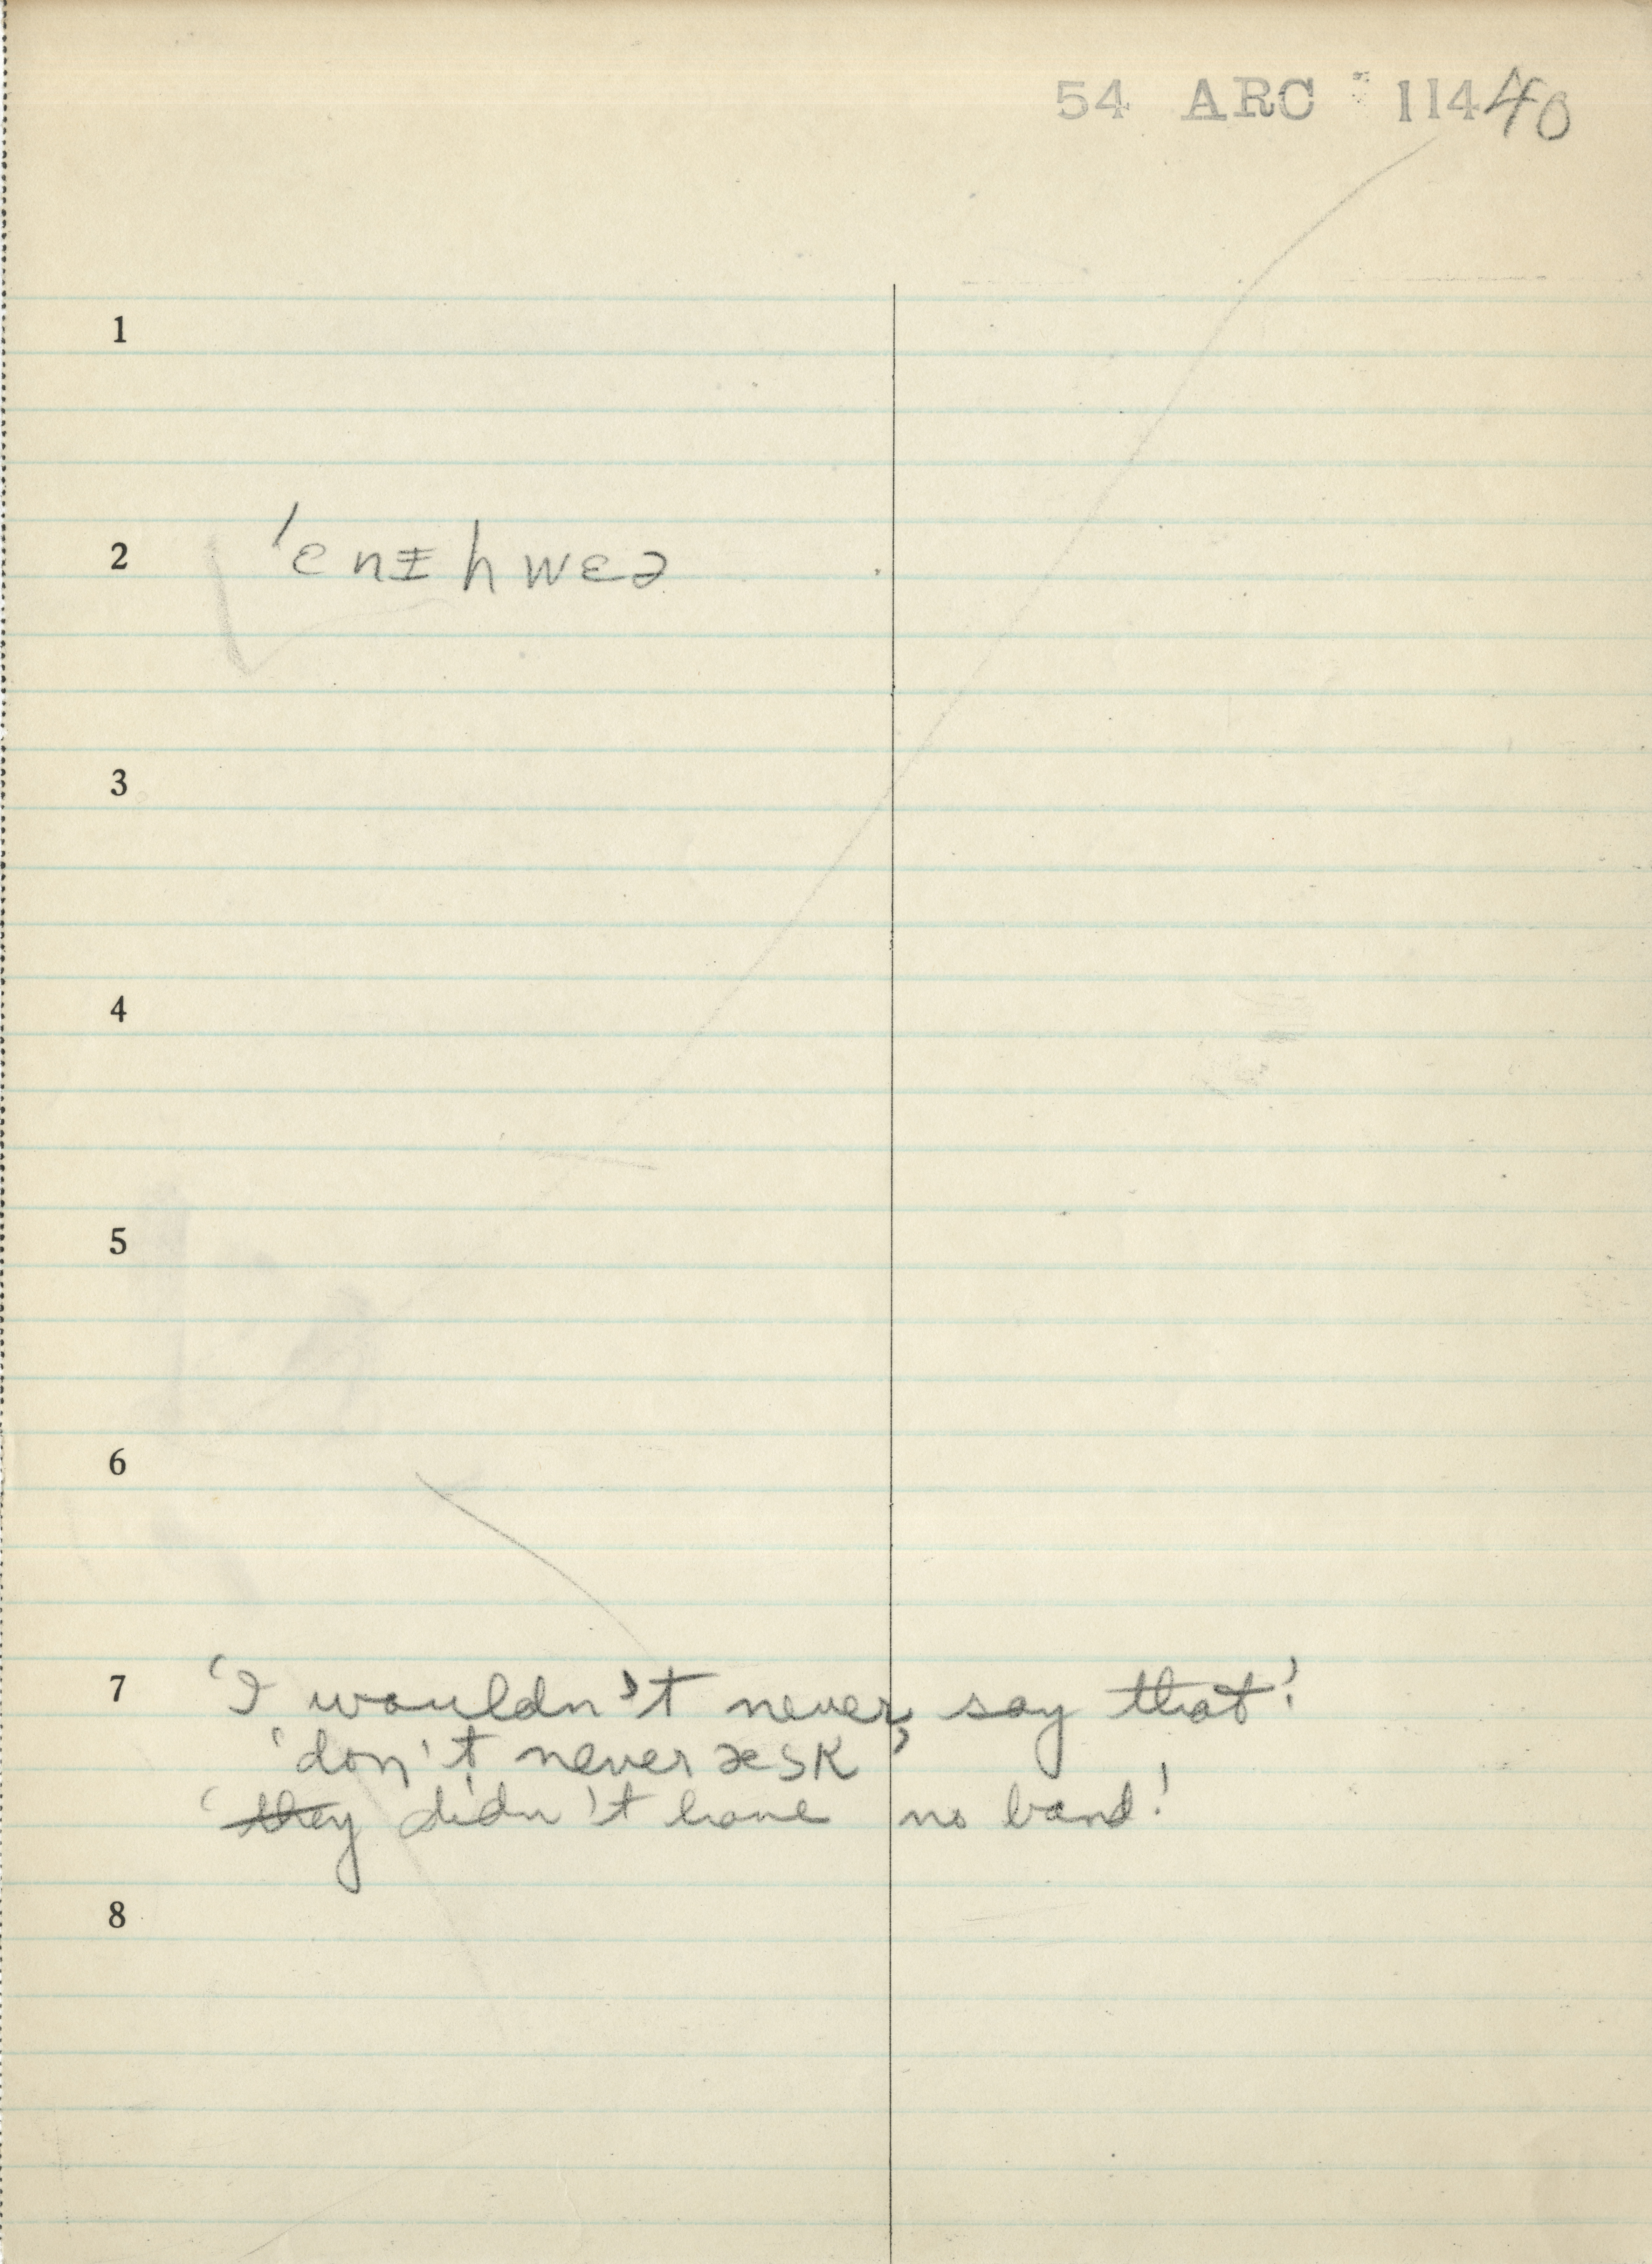 54 ARC 11440
1
2 ˈɛnɪhwɛə
3
4
5
6
7 'I wouldn't never say that'.
'don't never æsk'
'they didn't have no band'.
8